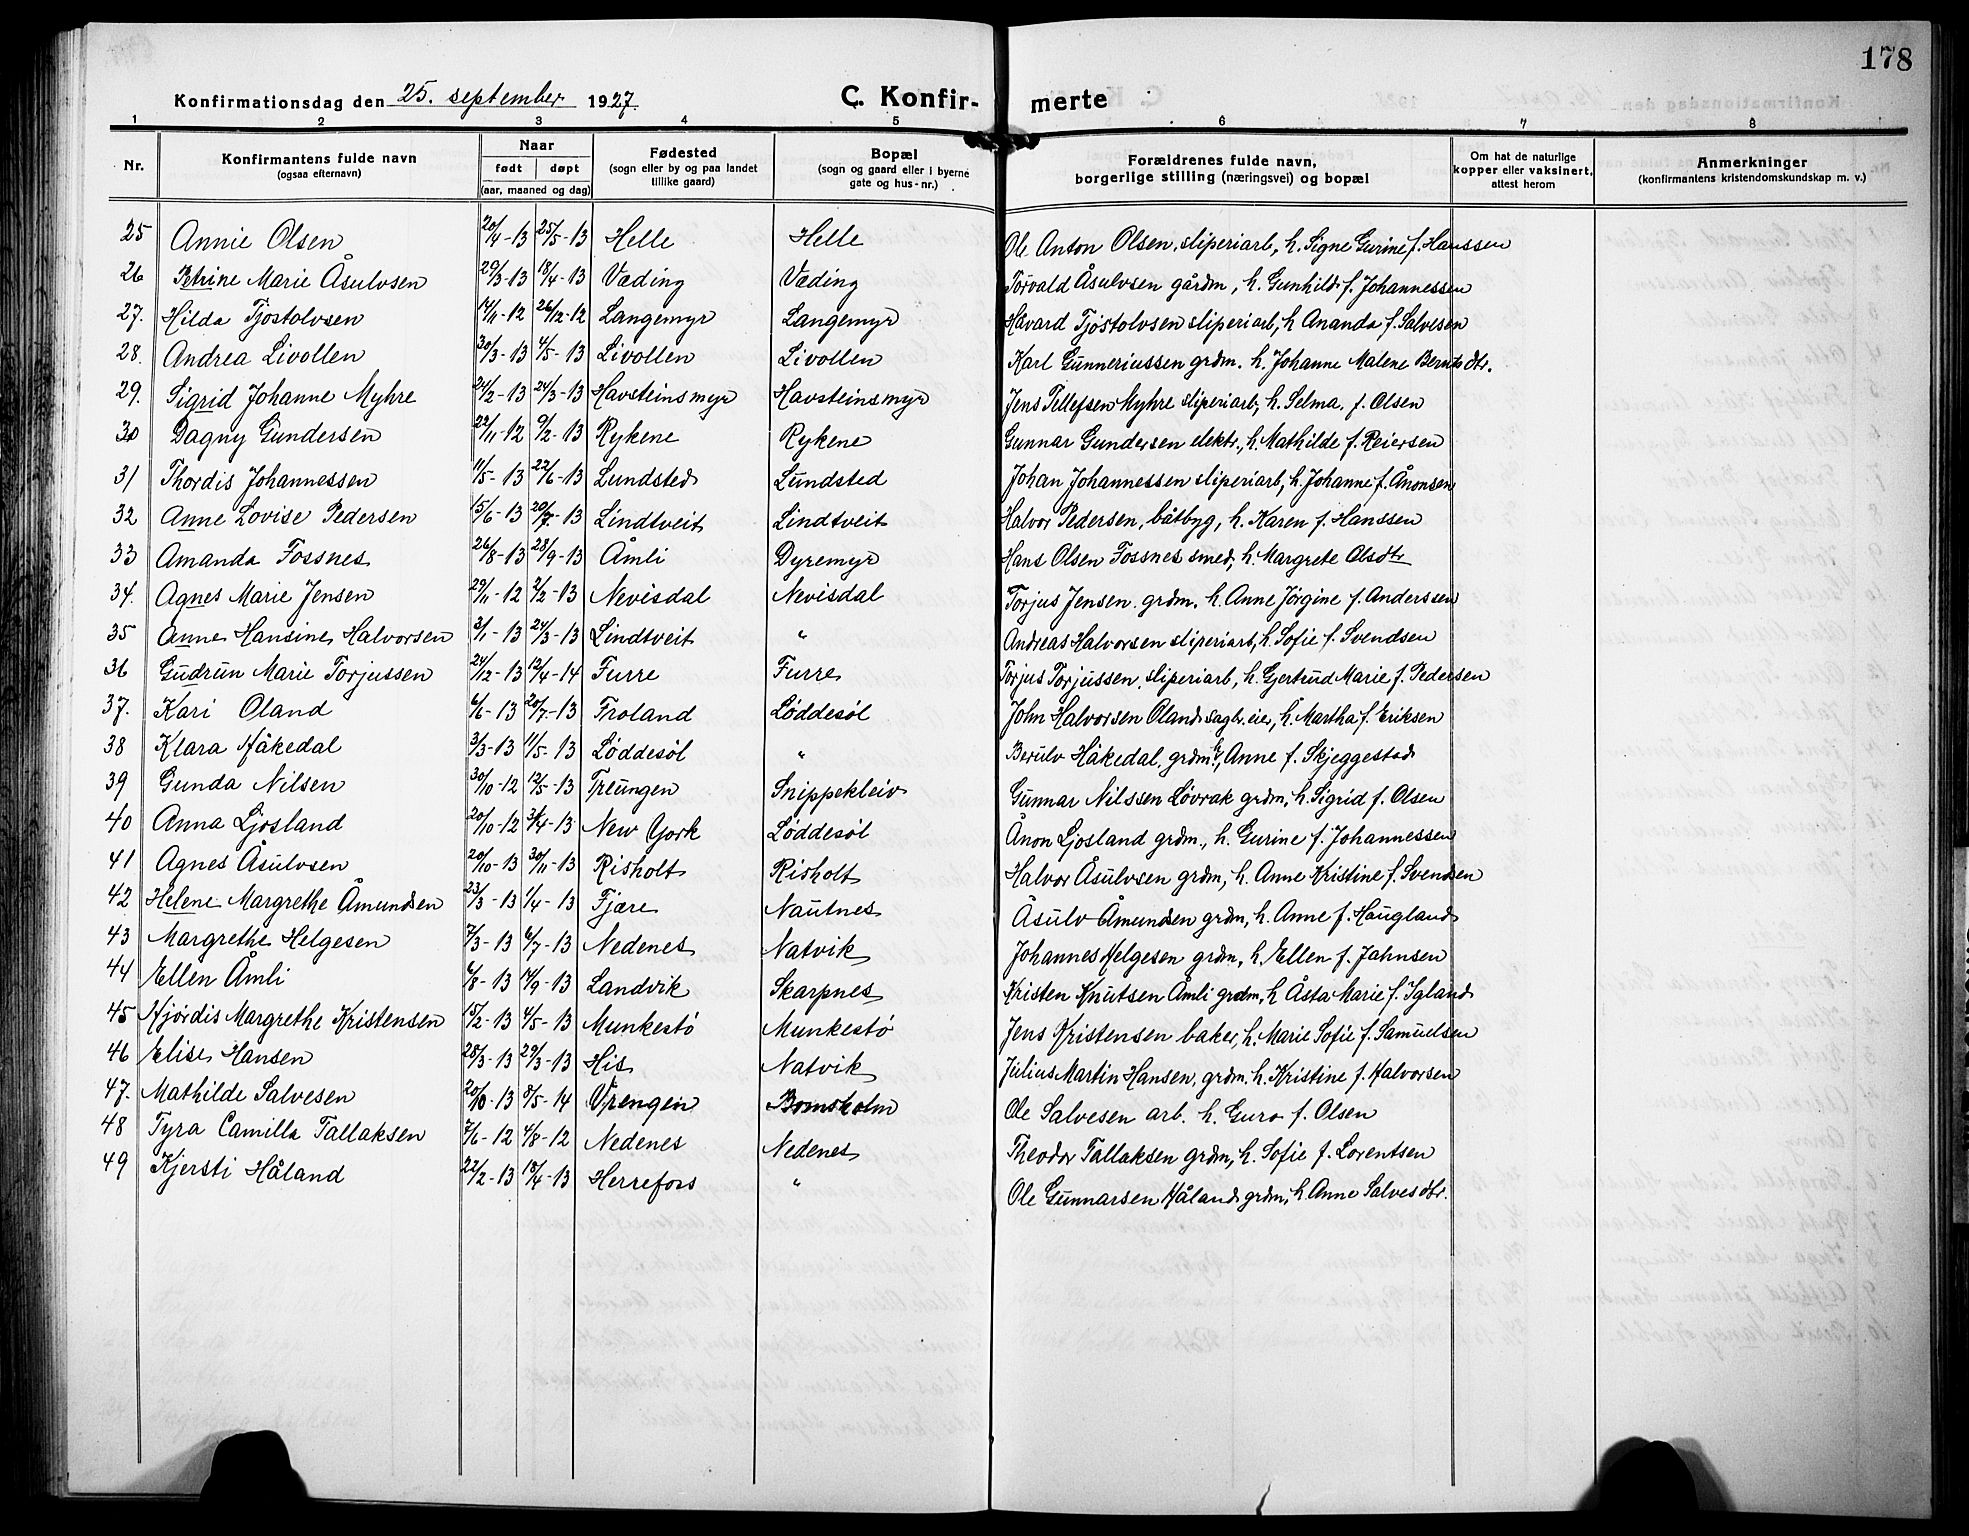 178
Konfirmationsdag den 25. september 1927. C. Konfirmerte
1 2 3 4 5 6 7 8
Nr. Konfirmantens fulde navn (ogsaa efternavn) Naar født døpt (aar, maaned og dag) Fødested (sogn eller by og paa landet tillike gaard) Bopæl (sogn og gaard eller i byerne gate og hus-nr.) Forældrenes fulde navn, borgerlige stilling (næringsvei) og bopæl Om hat de naturlige kopper eller vaksinert, attest herom Anmerkninger (konfirmantens kristendomskundskap m. v.)
25 Annie Olsen 20/4-13 25/5-13 Helle Helle Ole Anton Olsen, sliperiarb, h. Signe Gurine f. Hanssen
26 Petrine Marie Åsulvsen 29/3-13 18/4-13 Væding Væding Torvald Åsulvsen gårdm, h. Gunhild f. Johannessen
27. Hilda Tjøstolvsen 14/11-12 26/12-12 Langemyr Langemyr Håvard Tjøstolvsen sliperiarb, h Ananda f. Salvesen
28. Andrea Livollen 30/3-13 4/5-13 Livollen Livollen Karl Gunneriussen grdm. h. Johanne Malene Berntsdtr.
29. Sigrid Johanne Myhre 24/2-13 24/3-13 Havsteinsmyr Havsteinsmyr Jens Tellefsen Myhre sliperiarb, h. Selma f. Olsen
30 Dagny Gundersen 22/11-12 9/2-13 Rykene Rykene Gunnar Gundersen elektr., h. Mathilde f. Reiersen
31 Thordis Johannessen 11/5-13 22/6-13 Lundsted Lundsted Johan Johannessen sliperiarb, h. Johanne f. Ånonsen
32 Anne Lovise Pedersen 15/6-13 20/7-13 Lindtveit Lindtveit Halvor Pedersen, båtbyg, h. Karen f. Hanssen
33 Amanda Fossnes 26/8-13 28/9-13 Åmli Dyremyr Hans Olsen Fossnes smed, h. Margrete Olsdtr
34. Agnes Marie Jensen 29/11-12 2/2-13 Nevisdal Nevisdal Torjus Jensen. grdm. h. Anne Jörgine f. Anderssen
35 Anne Hansine Halvorsen 3/1-13 24/3-13 Lindtveit " Andreas Halvorsen sliperiarb, h. Sofie f. Svendsen
36 Gudrun Marie Torjussen 24/12-13 12/4-14 Furre Furre Torjus Torjussen, sliperiarb, h. Gjertrud Marie f. Pedersen
37. Kari Oland 6/6-13 20/7-13 Froland Løddesøl John Halvorsen Oland sagbr. eier, h. Martha f. Eriksen
38 Klara Håkedal 3/3-13 11/5-13 Løddesøl " Berulv Håkedal, grdm, h. Anne f. Skjeggestad
39 Gunda Nilsen 30/10-12 12/5-13 Treungen Snippekleiv Gunnar Nilssen Løvrak grdm, h. Sigrid f. Olsen
40 Anna Ljosland 20/10-12 3/4-13 New York Løddesøl Ånon Ljosland grdm., h. Gurine f. Johannessen
41 Agnes Åsulvsen 20/10-13 30/11-13 Risholt Risholt Halvor Åsulvsen grdm, h. Anne Kristine f. Svendsen
42 Helene Margrethe Åmundsen 23/3-13 1/4-13 Fjære Nautnes Åsulv Åmundsen grdm, h. Anne f. Haugland
43 Margrethe Helgesen 7/3-13 6/7-13 Nedenes Natvik Johannes Helgesen grdm, h. Ellen f. Jahnsen
44 Ellen Åmli 6/8-13 14/9-13 Landvik Skarpnes Kristen Knutsen Åmli grdm, h Åsta Marie f. Igland
45 Hjørdis Margrethe Kristensen 15/2-13 4/5-13 Munkestø Munkestø Jens Kristensen baker, h. Marie Sofie f. Samuelsen
46 Elise Hansen 28/3-13 29/3-13 His Natvik Julius Martin Hansen, grdm. h. Kristine f. Halvorsen
47. Mathilde Salvesen 20/10-13 8/5-14 Vrengen Bomsholm Ole Salvesen arb. h. Guro f. Olsen
48 Tyra Camilla Tallaksen 7/6-12 4/8-12 Nedenes Nedenes Theodor Tallaksen grdm, h. Sofie f. Lorentsen
49 Kjersti Håland 22/2-13 18/4-13 Herrefoss " Ole Gunnarsen Håland grdm, h. Anne Salvesdtr.